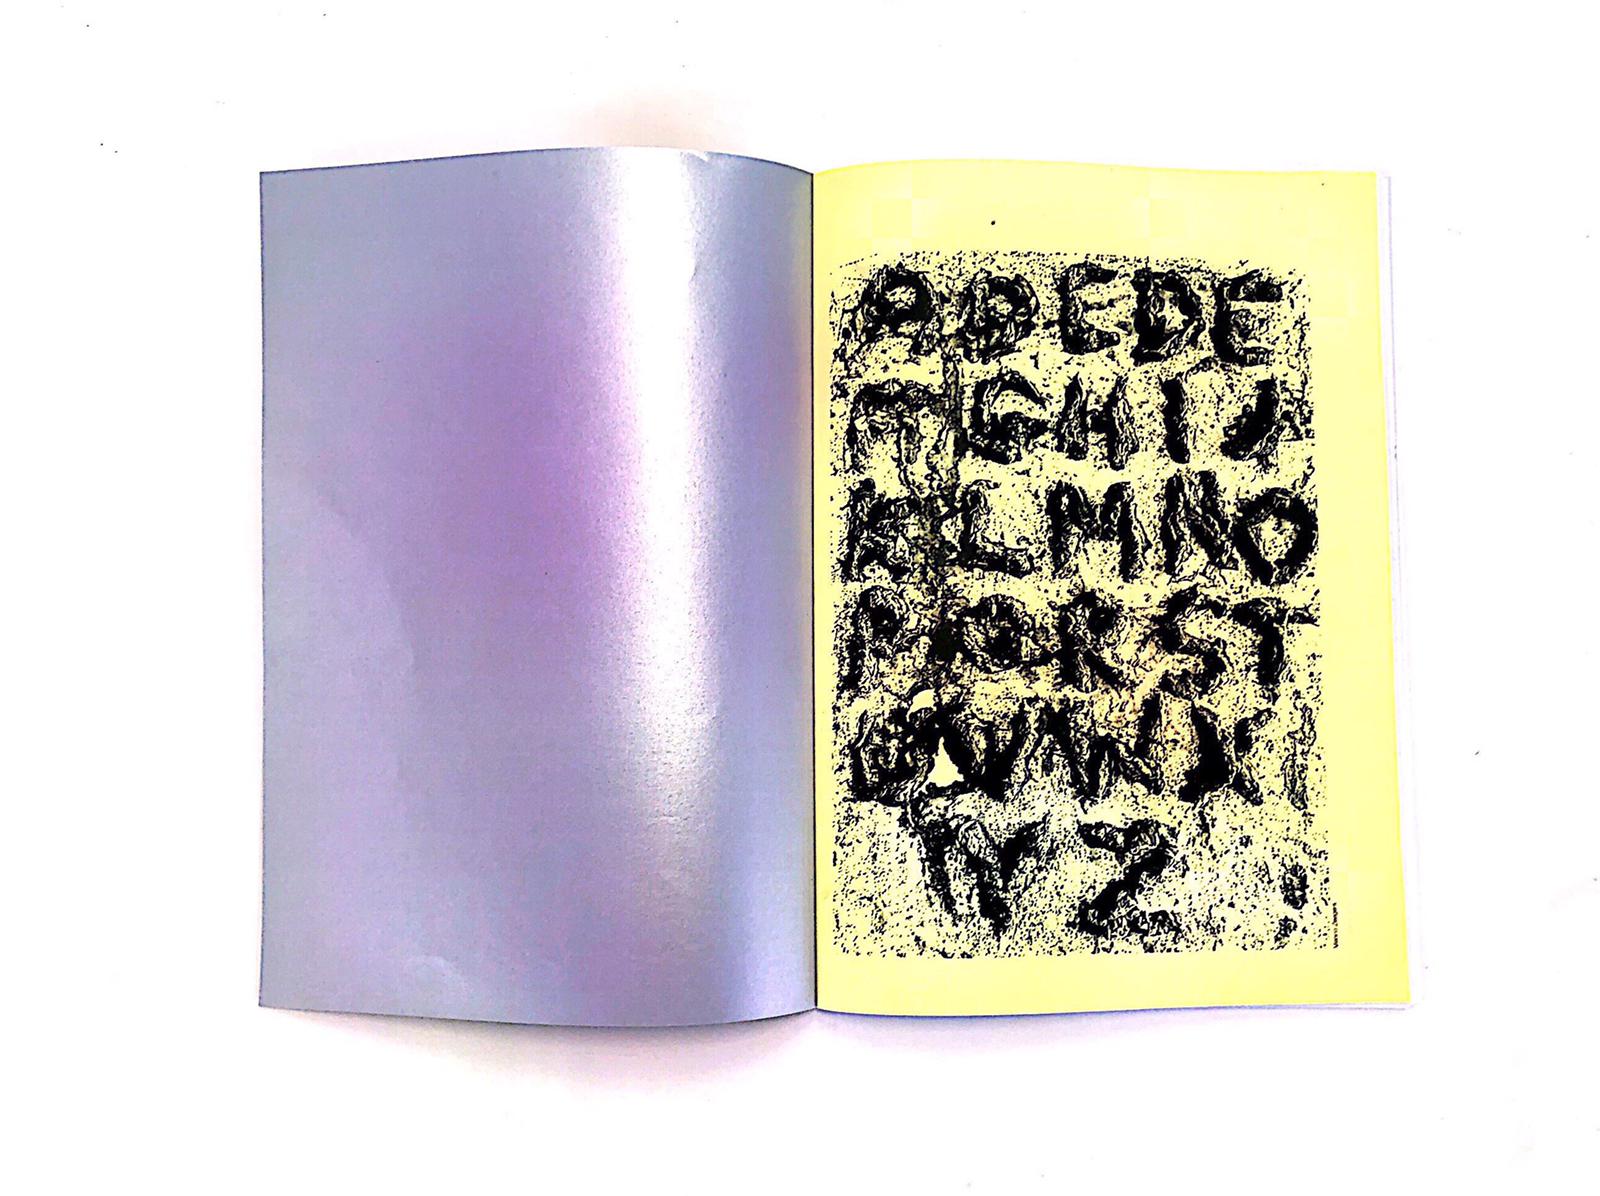 A B C D E
F G H I J
K L M N O
P Q R S T
U V W X
Y Z !